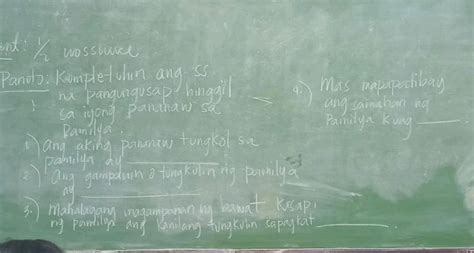 ent: 1/2 crosswise
Panuto: Kumpletuhin ang ss
na pangungusap hinggil
sa iyong pananaw sa
Pamilya.
1.) ang aking pananaw tungkol sa
pamilya ay ________
2.) Ang gampanin o tungkulin ng pamilya
ay ________
3.) Mahalagang magampanan ng bawat kasapi
ng pamilya ang kanilang tungkulin sapagkat ________
4.) Mas mapapatibay
ang samahan ng
Pamilya kung ________